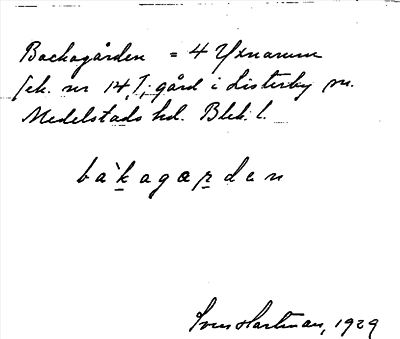 Backagården = 4 Yxnarum
[ek. nr 14], gård i Listerby sn.
Medelstads hd. Blek. l.
bàkagarden
Sven Hartman, 1929